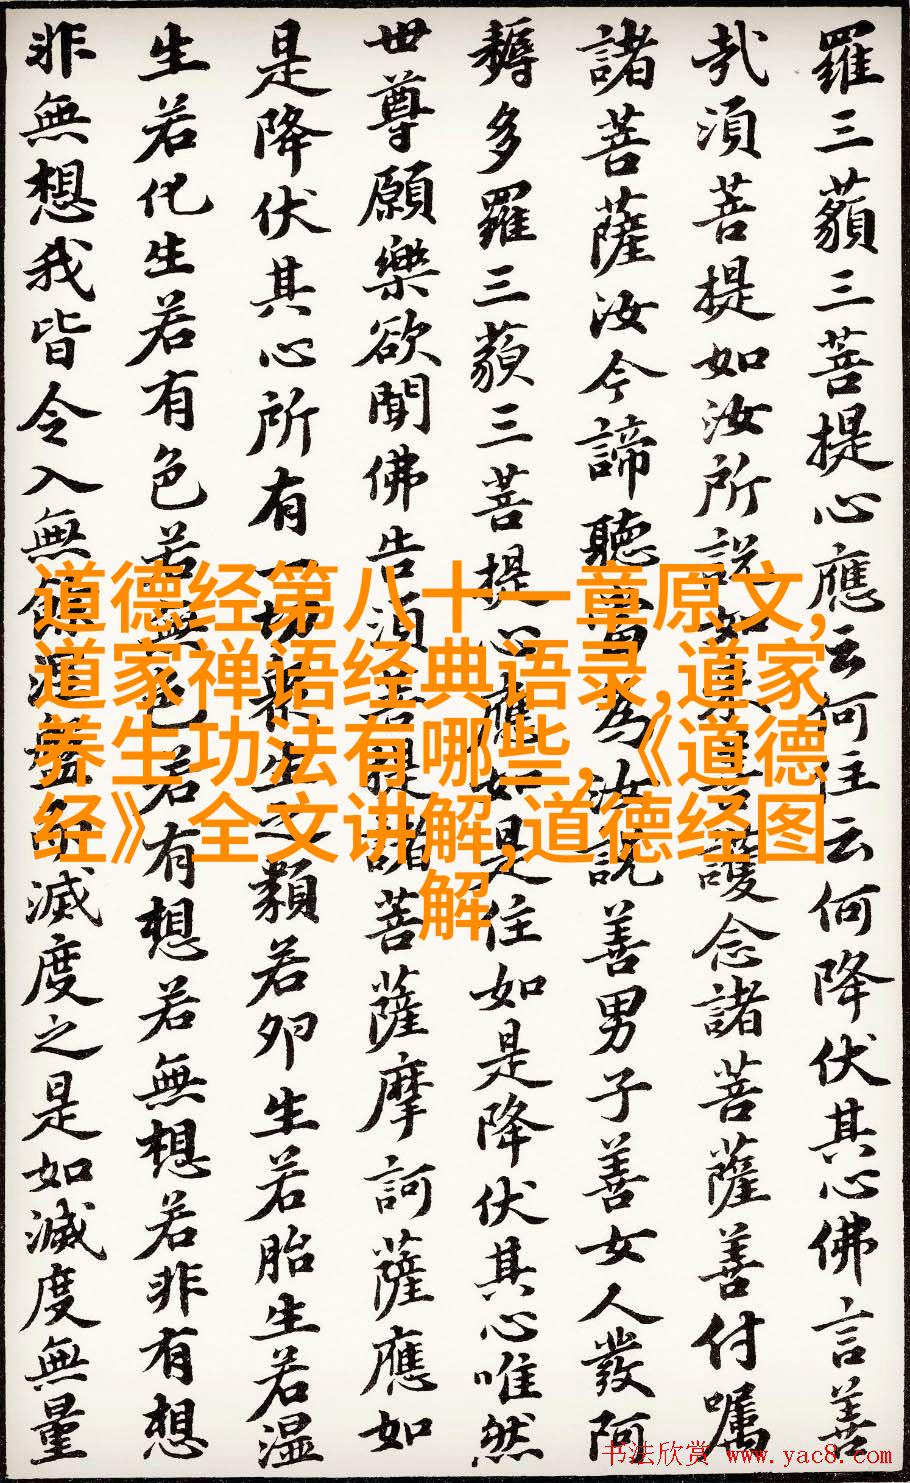 羅三藐三菩提心應云何住云何降伏其心佛言善
哉須菩提如汝所說如來善護念諸菩薩善付囑
諸菩薩汝今諦聽當為汝說善男子善女人發阿
耨多羅三藐三菩提心應如是住如是降伏其心唯然
世尊願樂欲聞佛告須菩提諸菩薩摩訶薩應如
是降伏其心所有一切眾生之類若卵生若胎生若湿
生若化生若有色若無色若有想若無想若非有想
非無想我皆令入無餘涅槃而滅度之是如滅度無量
道德经第八十一章原文,
道家禅语经典语录,道家
养生功法有哪些,《道德
经》全文讲解,道德经图
解
书法欣赏 www.yac8.com